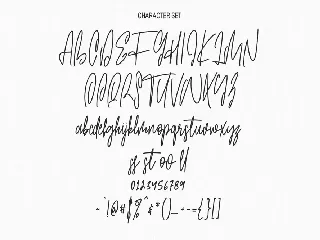 CHARACTER SET
ABCDEFGHIJKLMN
OPQRSTUVWXYZ
abcdefghijklmnopqrstuvwxyz
ss st oo ll
0123456789